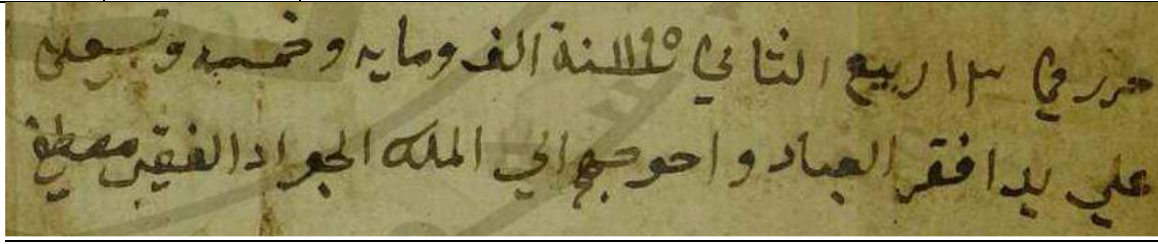 حرر في ١٣ ربيع الثاني ١١٩٥ سنة الف ومايه وخمسه وتسعين
علي يد افقر العباد واحوجهم الي الملك الجواد الفقير مصطفي